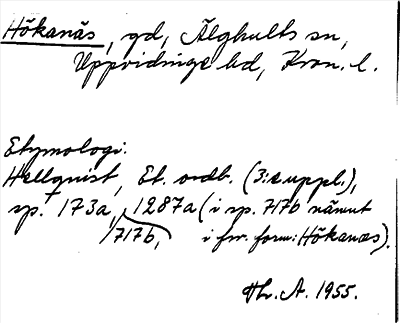 Hökanäs, gd, Älghults sn,
Uppvidinge hd, Kron. l.
Etymologi:
Hellquist, Et. ordb. (3:e uppl.),
sp. 173a, 1287a (i sp. 717b nämnt
717b, i fw. form: Hökanæs).
Th. A. 1955.